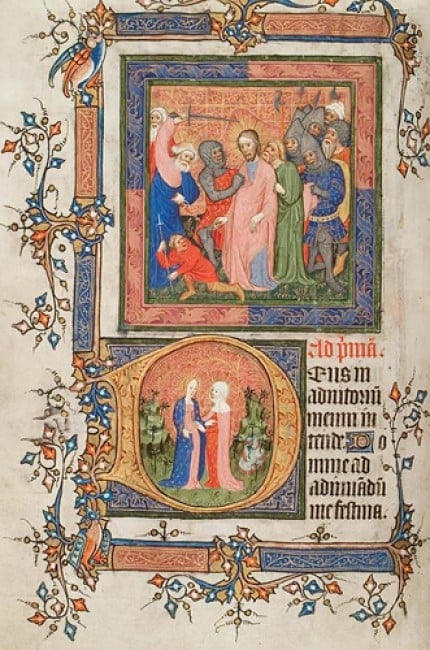 Ad p̄mā.
Deus in
adiutoriū
meum in
tende. Do
mine ad
adiuuādū
me festina.